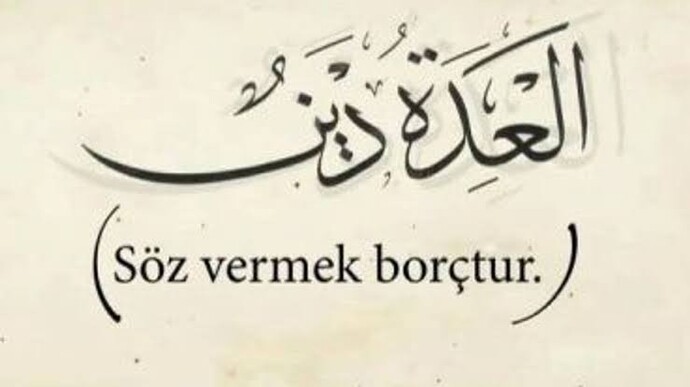 الْعِدَةُ دَيْنٌ
(Söz vermek borçtur.)